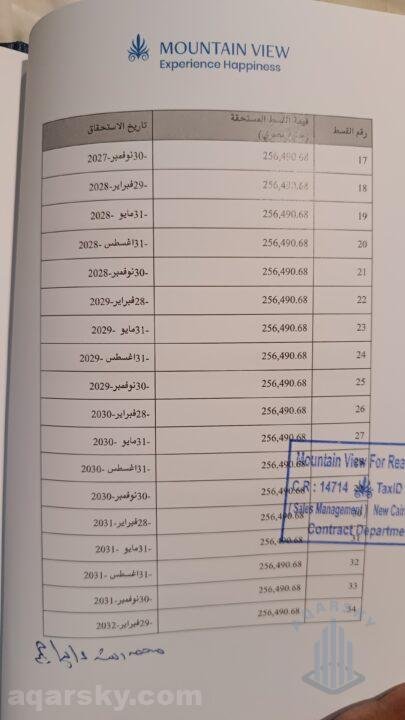 MOUNTAIN VIEW
Experience Happiness
رقم القسط قيمة القسط المستحقة تاريخ الاستحقاق
17 256,490.68 30-نوفمبر-2027
18 256,490.68 29-فبراير-2028
19 256,490.68 31-مايو -2028
20 256,490.68 31-اغسطس -2028
21 256,490.68 30-نوفمبر-2028
22 256,490.68 28-فبراير-2029
23 256,490.68 31-مايو -2029
24 256,490.68 31-اغسطس -2029
25 256,490.68 30-نوفمبر-2029
26 256,490.68 28-فبراير-2030
27 256,490.68 31-مايو -2030
256,490.68 31-اغسطس -2030
256,490.68 30-نوفمبر-2030
256,490.68 28-فبراير-2031
31 256,490.68 31-مايو -2031
32 256,490.68 31-اغسطس -2031
33 256,490.68 30-نوفمبر-2031
34 256,490.68 29-فبراير-2032
Mountain View For Rea
C.R : 14714 TaxID
Sales Management New Cair
Contract Departme
AQARSKY
aqarsky.com